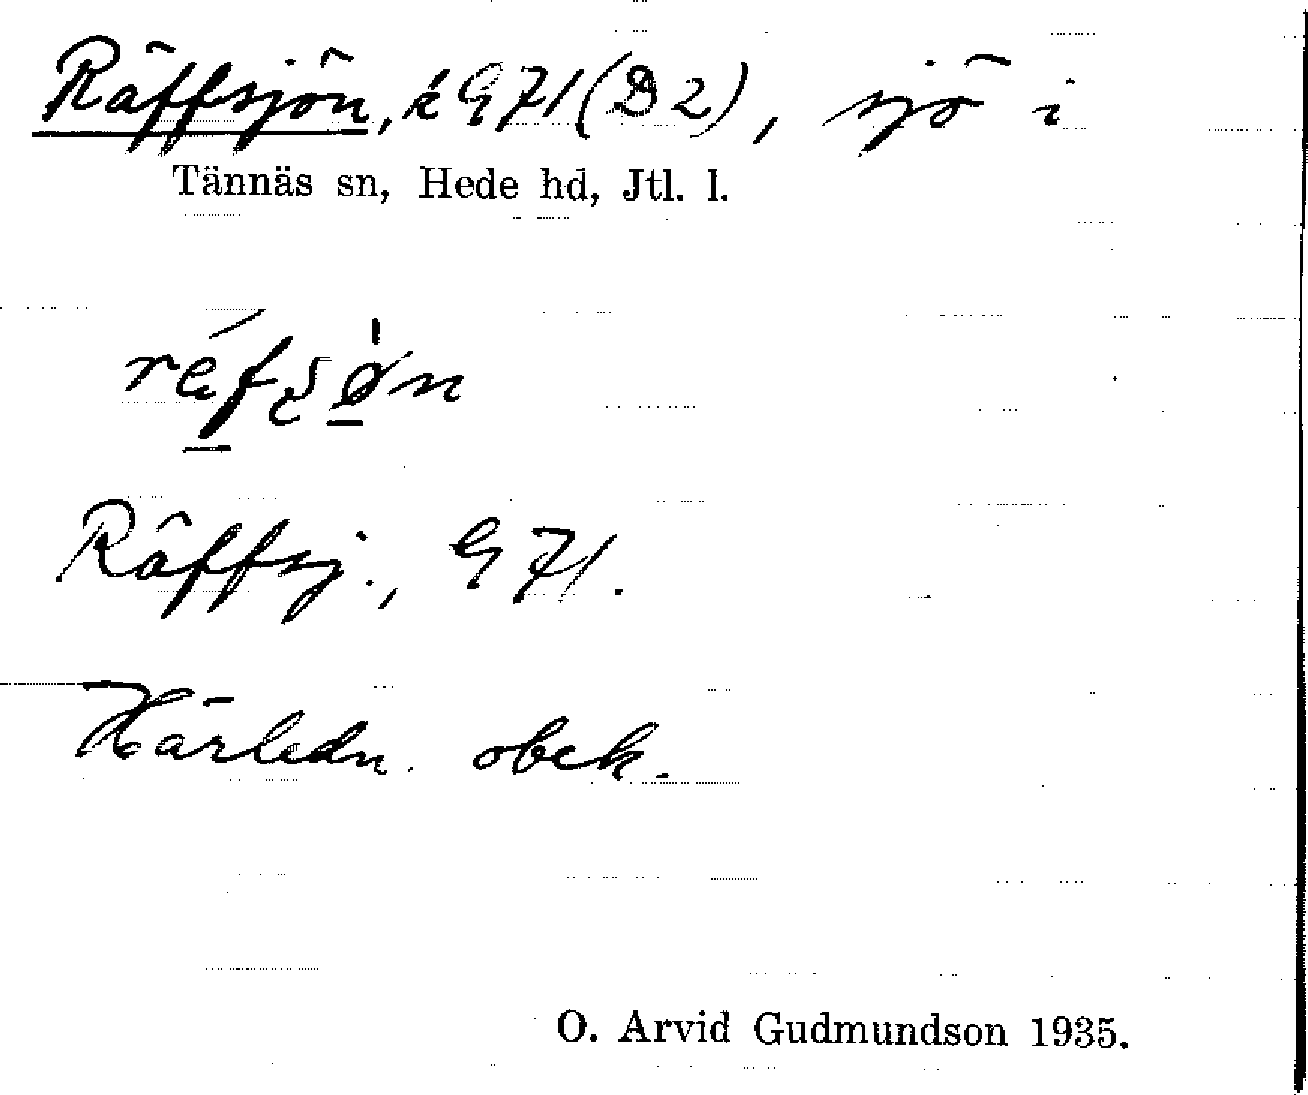 Räffsjön, k G 71 (D 2), sjö i
Tännäs sn, Hede hd, Jtl. l.
Räffsj., G 71.
Härledn. obek.
O. Arvid Gudmundson 1935.